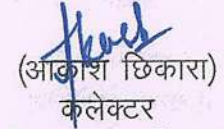 (आकाश छिकारा)
कलेक्टर